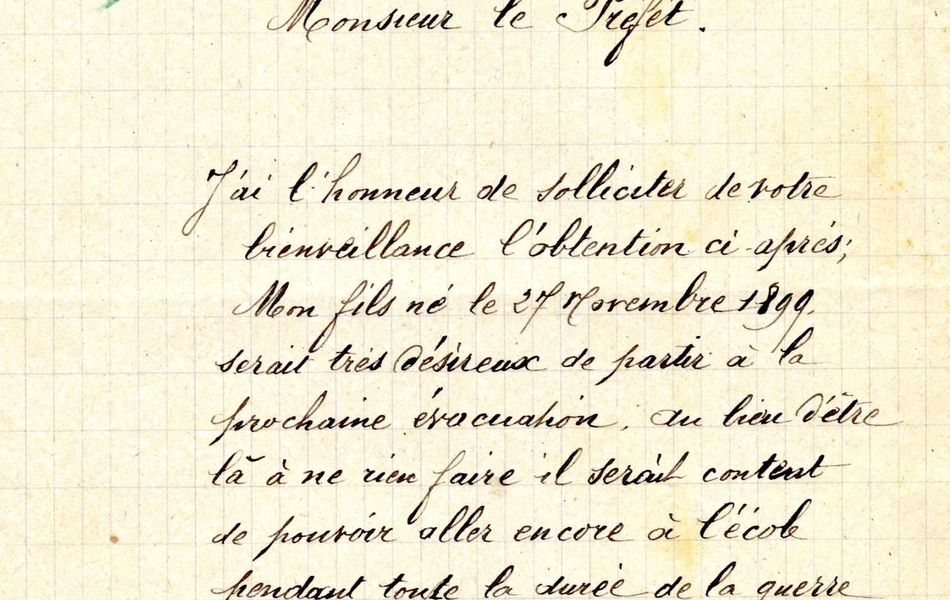 Monsieur le Préfét.
J'ai l'honneur de solliciter de votre
bienveillance l'obtention ci-aprés;
Mon fils né le 27 Novembre 1899.
serait trés désireux de partir à la
prochaine évacuation, au lieu d'être
là à ne rien faire il serait content
de pouvoir aller encore à l'école
pendant toute la durée de la guerre